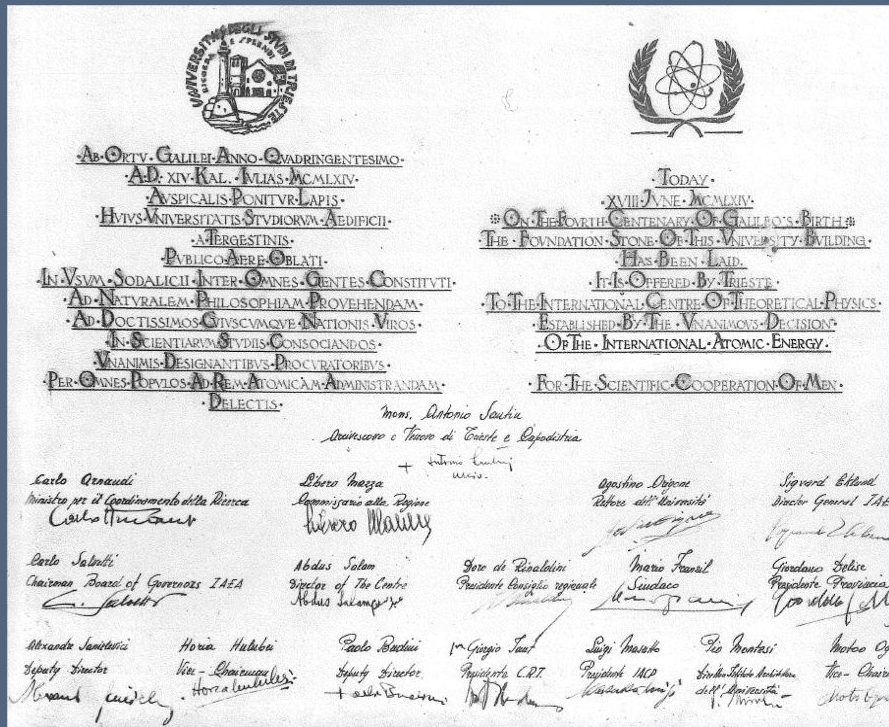 UNIVERSITÀ DEGLI STUDI DI TRIESTE
RICORDA E SPERANDI
·AB·ORTV·GALILEI·ANNO·QVADRINGENTESIMO·
·A.D.·XIV·KAL.·IVLIAS·MCMLXIV·
AVSPICALIS·PONITVR·LAPIS·
·HVIVS·VNIVERSITATIS·STVDIORVM·AEDIFICII·
·A·TERGESTINIS·
PVBLICO·AERE·OBLATI·
·IN·VSVM·SODALICII·INTER·OMNES·GENTES·CONSTITVTI·
·AD·NATVRALEM·PHILOSOPHIAM·PROVEHENDAM·
·AD·DOCTISSIMOS·CVIVSCVMQVE·NATIONIS·VIROS·
·IN·SCIENTIARVM·STVDIIS·CONSOCIANDOS·
VNANIMIS·DESIGNANTIBVS·PROCVRATORIBVS·
·PER·OMNES·POPVLOS·AD·REM·ATOMICAM·ADMINISTRANDAM·
·DELECTIS·
·TODAY·
·XVIII·JVNE·MCMLXIV·
·ON·THE·FOVRTH·CENTENARY·OF·GALILEO'S·BIRTH·
·THE·FOVNDATION·STONE·OF·THIS·VNIVERSITY·BVILDING·
·HAS·BEEN·LAID·
·IT·IS·OFFERED·BY·TRIESTE·
·TO·THE·INTERNATIONAL·CENTRE·OF·THEORETICAL·PHYSICS·
·ESTABLISHED·BY·THE·VNANIMOVS·DECISION·
·OF·THE·INTERNATIONAL·ATOMIC·ENERGY·
·FOR·THE·SCIENTIFIC·COOPERATION·OF·MEN·
Mons. Antonio Santin
Arcivescovo e Vescovo di Trieste e Capodistria
Carlo Arnaudi
Ministro per il Coordinamento della Ricerca
Libero Mazza
Commissario alla Regione
Libero Mazza
Agostino Origone
Rettore dell'Università
Sigvard Eklund
Director General IAEA
Carlo Salvetti
Chairman Board of Governors IAEA
C. Salvetti
Abdus Salam
Director of The Centre
Abdus Salam
Doro de Rinaldini
Presidente Consiglio regionale
Mario Franzil
Sindaco
Giordano Delise
Presidente Provincia
Alexandre Sanielevici
Deputy Director
Horia Hulubei
Vice-Chairman
Horia Hulubei
Paolo Budini
Deputy Director
Giorgio
Presidente C.R.T.
Luigi Masotto
Presidente IACP
Pio Montesi
Direttore Istituto Architettura
dell'Università
Vice-